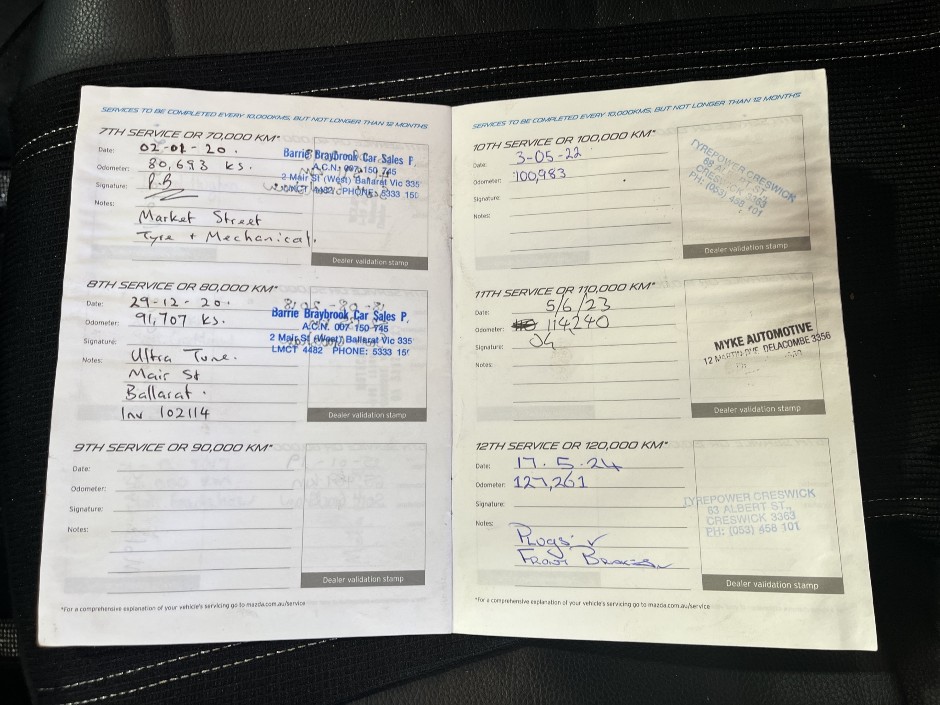 SERVICES TO BE COMPLETED EVERY 10,000KMS, BUT NOT LONGER THAN 12 MONTHS
7TH SERVICE OR 70,000 KM*
Date: 02-01-20.
Odometer: 80,693 ks.
Signature: P.B
Notes:
Market Street
Tyre + Mechanical.
Barrie Braybrook Car Sales P.
A.C.N. 007 150 745
2 Mair St (West) Ballarat Vic 335
LMCT 4482 PHONE: 5333 150
Dealer validation stamp
8TH SERVICE OR 80,000 KM*
Date: 29-12-20.
Odometer: 91,707 ks.
Signature:
Notes: Ultra Tune.
Mair St
Ballarat.
Inv 102114
Barrie Braybrook Car Sales P.
A.C.N. 007 150 745
2 Mair St (West) Ballarat Vic 335
LMCT 4482 PHONE: 5333 15
Dealer validation stamp
9TH SERVICE OR 90,000 KM*
Date:
Odometer:
Signature:
Notes:
Dealer validation stamp
*For a comprehensive explanation of your vehicle's servicing go to mazda.com.au/service
SERVICES TO BE COMPLETED EVERY 10,000KMS, BUT NOT LONGER THAN 12 MONTHS
10TH SERVICE OR 100,000 KM*
Date: 3-05-22
Odometer: 100,983
Signature:
Notes:
TYREPOWER CRESWICK
63 ALBERT ST.,
CRESWICK 3363
PH: (053) 458 101
Dealer validation stamp
11TH SERVICE OR 110,000 KM*
Date: 5/6/23
Odometer: 114240
Signature:
Notes:
MYKE AUTOMOTIVE
12 DELACOMBE 3356
Dealer validation stamp
12TH SERVICE OR 120,000 KM*
Date: 17.5.24
Odometer: 127,261
Signature:
Notes:
Plugs ✓
Front Brakes
TYREPOWER CRESWICK
63 ALBERT ST.,
CRESWICK 3363
PH: (053) 458 101
Dealer validation stamp
*For a comprehensive explanation of your vehicle's servicing go to mazda.com.au/service